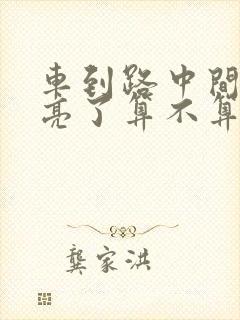 車到路中間
亮了算不算
龔家洪